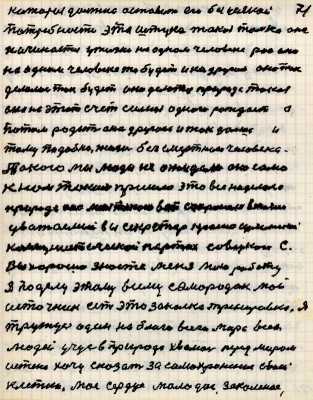 которая должна оставит его без всякой 71
потребности эта штука такая только она
начинается у жизни на одном человеке раз оно
на одном человеке то будет и на другом оно так
делается так будет оно делается природе такая
она на этот счет сильна одного рождает а
потом родит она другого и так далее и
тому подобно, жизни бессмертного человека.
Такого мы люди не ожидали оно само
к нам таким пришло это все надолго
природе
уважаемый вы секретарь
коммунистической партии советской С.
Вы хорошо знаете меня мою работу
Я подчеркну этому всему самородок мой
источник есть это закалка тренировка, Я
тружусь один на благо всего мира всех
людей учусь в природе хвалюсь перед миром
истинно хочу сказать за самохранение своей
клетки, мое сердце молодое, закаленое,